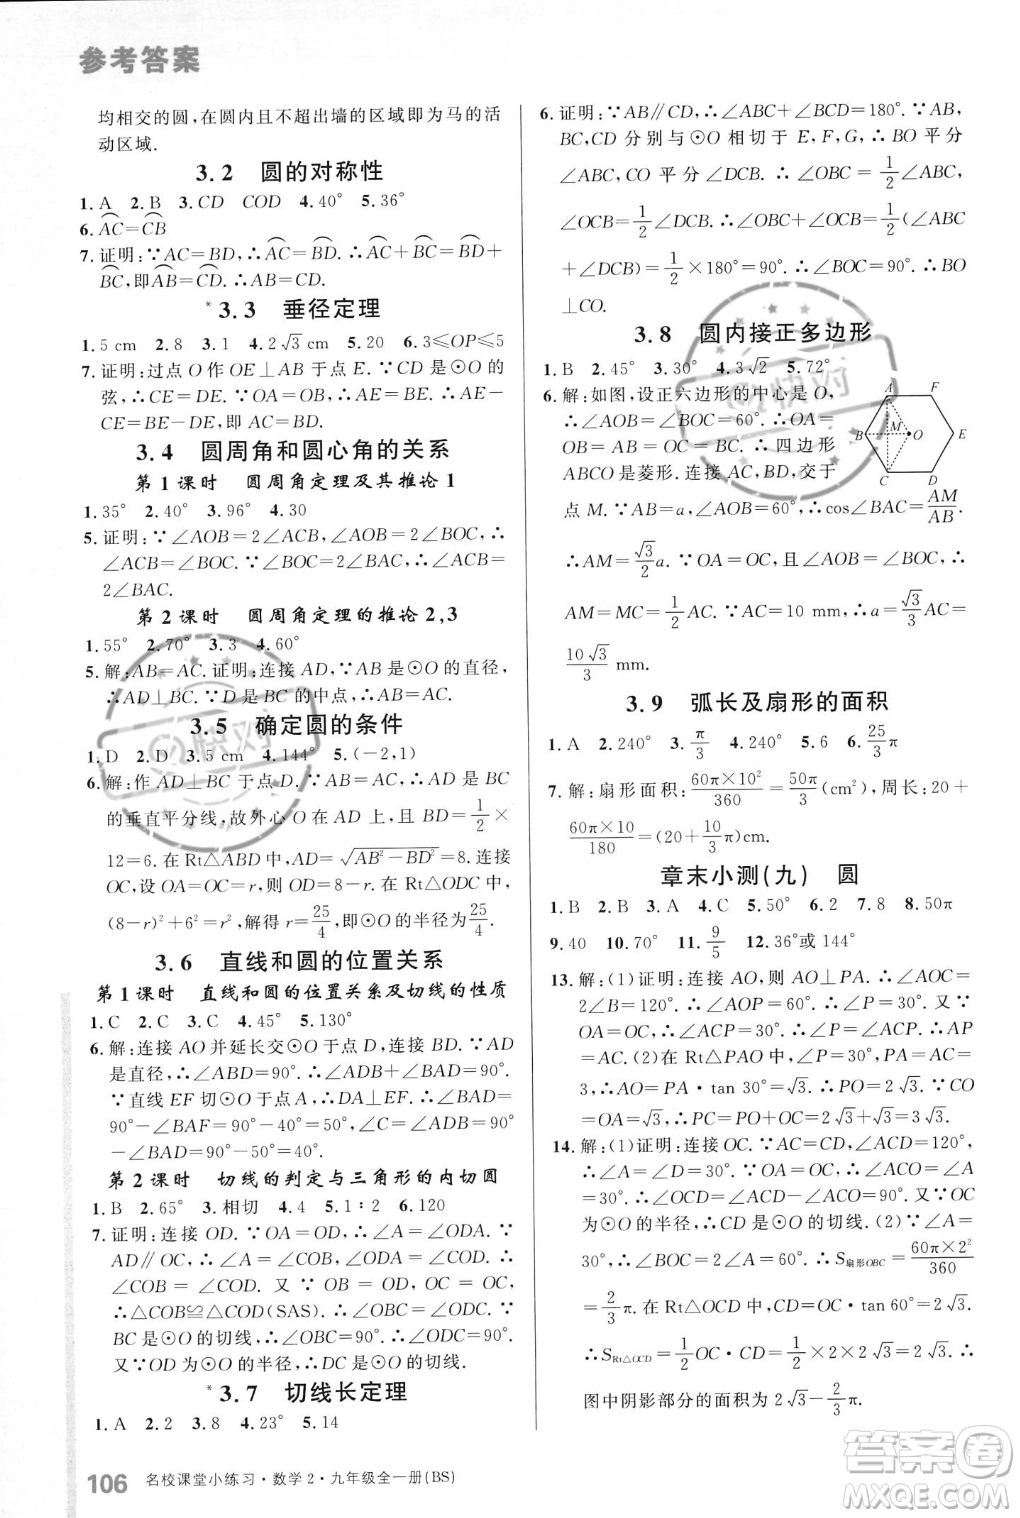 参考答案
均相交的圆,在圆内且不超出墙的区域即为马的活
动区域.
3.2 圆的对称性
1.A 2.B 3.CD COD 4.40° 5.36°
6.A͡C=C͡B
7.证明:∵AC=BD,∴A͡C=B͡D.∴A͡C+B͡C=B͡D+
B͡C,即A͡B=C͡D.∴AB=CD.
*3.3 垂径定理
1.5 cm 2.8 3.1 4.2√3 cm 5.20 6.3≤OP≤5
7.证明:过点O作OE⊥AB于点E.∵CD为⊙O的
弦,∴CE=DE.∵AB为小⊙O的弦,∴AE=
BE.∴CE-AE=DE-BE,即AC=BD.
3.4 圆周角和圆心角的关系
第1课时 圆周角定理及其推论1
1.35° 2.40° 3.96° 4.30
5.证明:∵∠AOB=2∠ACB,∠AOB=2∠BOC,∴
∠ACB=∠BOC.∵∠BOC=2∠BAC,∴∠ACB=
2∠BAC.
第2课时 圆周角定理的推论2,3
1.55° 2.70° 3.3 4.60°
5.解:AB=AC.证明:连接AD,∵AB是⊙O的直径,
∴AD⊥BC.∵D是BC的中点,∴AB=AC.
3.5 确定圆的条件
1.D 2.D 3.5 cm 4.144° 5.(-2,1)
6.解:作AD⊥BC于点D.∵AB=AC,∴AD是BC
的垂直平分线,故外心O在AD上,且BD=1/2×
12=6.在Rt△ABD中,AD=√(AB²-BD²)=8.连接
OC,设OA=OC=r,则OD=8-r.在Rt△ODC中,
(8-r)²+6²=r²,解得r=25/4,即⊙O的半径为25/4.
3.6 直线和圆的位置关系
第1课时 直线和圆的位置关系及切线的性质
1.C 2.C 3.C 4.45° 5.130°
6.解:连接AO并延长交⊙O于点D,连接BD.∵AD
是直径,∴∠ABD=90°.∴∠ADB+∠BAD=90°.
∵直线EF切⊙O于点A,∴DA⊥EF.∴∠DAB=
90°-∠BAF=90°-50°=40°.∴∠ADB=90°-
∠BAD=90°-40°=50°.
第2课时 切线的判定与三角形的内切圆
1.B 2.65° 3.相切 4.B 5.1∶2 6.120
7.证明:连接OD.∵OA=OD,∴∠A=∠ODA.∵
AD∥OC,∴∠A=∠COB,∠ODA=∠COD.∴
∠COB=∠COD.又∵OB=OD,OC=OC,
∴△COB≌△COD(SAS).∴∠OBC=∠ODC.∵
BC是⊙O的切线,∴∠OBC=90°.∴∠ODC=90°.
又∵OD是⊙O的半径,∴DC是⊙O的切线.
*3.7 切线长定理
1.A 2.2 3.8 4.23° 5.14
6.证明:∵AB∥CD,∴∠ABC+∠BCD=180°.∵AB,
BC,CD分别与⊙O相切于E,F,G,∴BO平分
∠ABC,CO平分∠DCB.∴∠OBC=1/2∠ABC,
∠OCB=1/2∠DCB.∴∠OBC+∠OCB=1/2(∠ABC
+∠DCB)=1/2×180°=90°.∴∠BOC=90°.∴BO
⊥CO.
3.8 圆内接正多边形
1.B 2.45° 3.30° 4.3√2 5.72°
6.解:如图,设正六边形的中心是O,
∠AOB=∠BOC=60°.∴OA=AB=
OB=OC=BC.∴四边形
ABCO是菱形.连接AC,BD,交于
点M.∵AB=a,∠AOB=60°,∴cos∠BAC=AM/AB.
∴AM=√3/2 a.∵OA=OC,且∠AOB=∠BOC,∴
AM=MC=1/2AC.∵AC=10 mm,∴a=AM/(√3/2)=
10√3/3 mm.
A F B M O E C D
3.9 弧长及扇形的面积
1.A 2.240° 3.π/3 4.240π 5.6 6.25/3π
7.解:扇形面积:60π×10²/360=50π/3(cm²),周长:20+
60π×10/180=(20+10/3π)cm.
章末小测(九) 圆
1.B 2.B 3.A 4.C 5.50° 6.2 7.8 8.50π
9.40 10.70° 11.9/5 12.36°或144°
13.解:(1)证明:连接AO,则AO⊥PA.∴∠AOC=
2∠B=120°,∴∠AOP=60°.∴∠P=30°.又∵
OA=OC,∴∠OAC=∠ACP=30°.∴∠P=∠ACP.∴AP=
AC.(2)在Rt△PAO中,∠P=30°,PA=
3,∴AO=PA·tan 30°=√3.∴PO=2√3.∵CO
=OA=√3,∴PC=PO+OC=2√3+√3=3√3.
14.解:(1)证明:连接OC.∵AC=CD,∠ACD=120°,
∴∠A=∠D=30°.∵OA=OC,∴∠ACO=∠A=
30°.∴∠OCD=∠ACD-∠ACO=90°.又∵OC
为⊙O的半径,∴CD是⊙O的切线.(2)∵∠A=
30°,∴∠BOC=2∠A=60°.∴S扇形OBC=60π×2²/360
=2/3π.在Rt△OCD中,CD=OC·tan 60°=2√3.
∴S Rt△OCD=1/2OC·CD=1/2×2×2√3=2√3.∴
图中阴影部分的面积为2√3-2/3π.
106 名校课堂小练习·数学2·九年级全一册(BS)
快对
快对
作业精灵
MXQE.COM